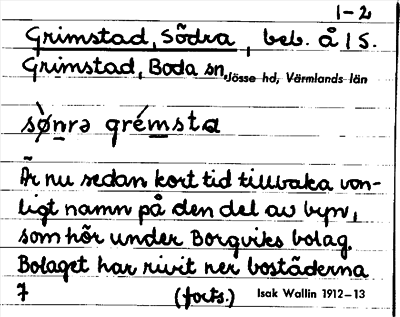 1-2
Grimstad, Södra, beb. å 1 S.
Grimstad, Boda sn, Jösse hd, Värmlands län
sø̀nrə grémsta
Är nu sedan kort tid tillbaka van-
ligt namn på den del av byn,
som hör under Borgviks bolag.
Bolaget har rivit ner bostäderna
7 (forts.) Isak Wallin 1912-13